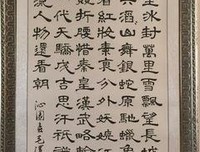 里冰封萬里雪飄望長城
滔山舞銀蛇原馳蠟象
看紅妝素裹分外妖嬈
競折腰惜秦皇漢武略輸
代天驕成吉思汗祇識
流人物還看今朝
沁園春毛澤